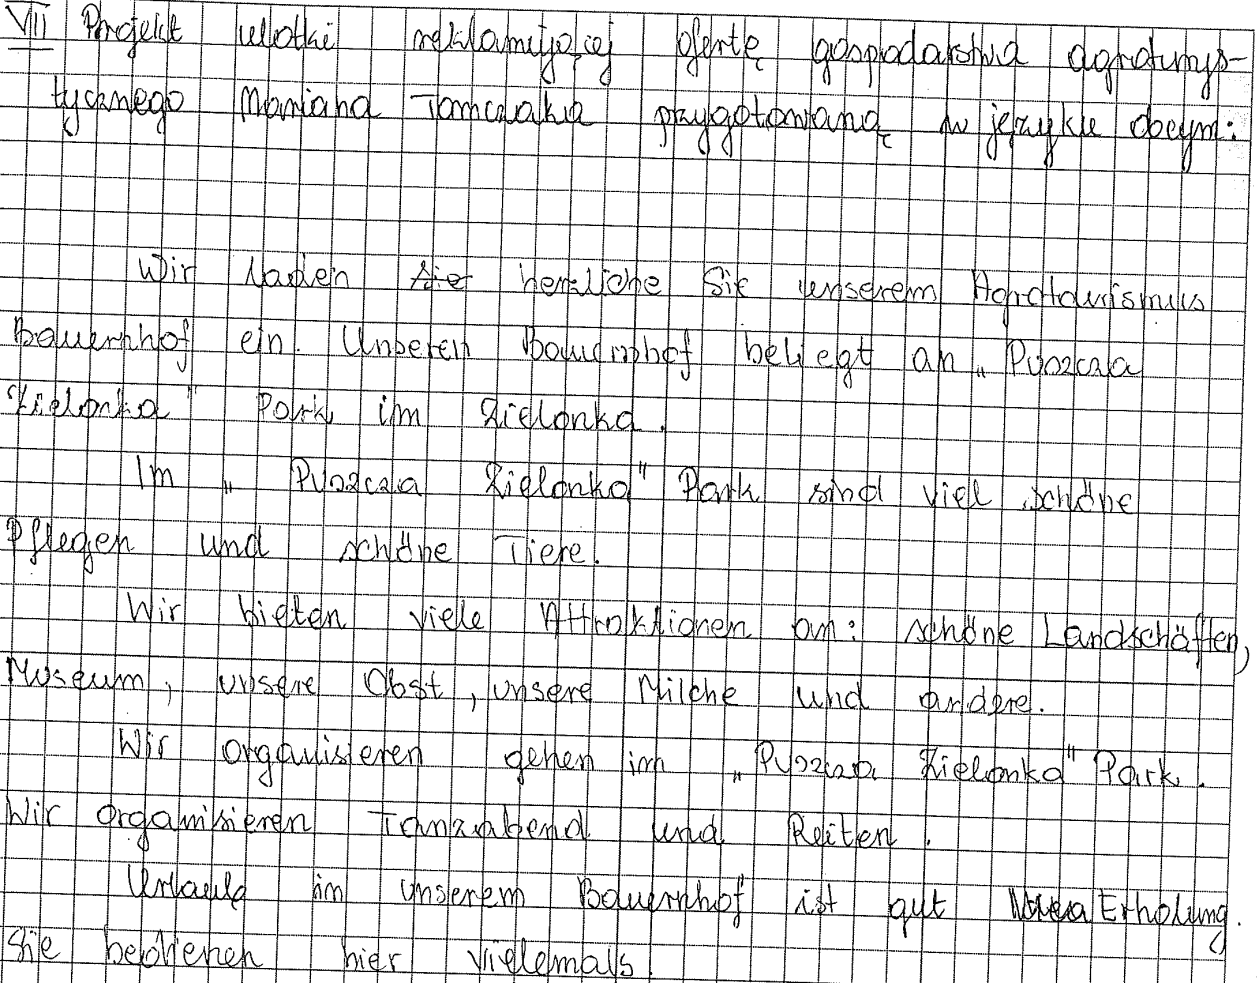 VII Projekt ulotki reklamującej ofertę gospodarstwa agroturys-
tycznego Mariana Tomczaka przygotowaną w języku obcym:
Wir laden sie herzliche Sie unserem Agrotourismus
Bauernhof ein. Unseren Bauernhof beliegt an „Puszcza
Zielonka" Park im Zielonka.
Im „Puszcza Zielonka" Park sind viel schöne
Pflegen und schöne Tiere.
Wir bieten viele Attraktionen an: schöne Landschäften,
Museum, unsere Obst, unsere Milche und andere.
Wir organisieren gehen im „Puszcza Zielonka" Park.
Wir organisieren Tanzabend und Reiten.
Urlaub im unserem Bauernhof ist gut Erholung.
Sie bedienen hier vielemals.